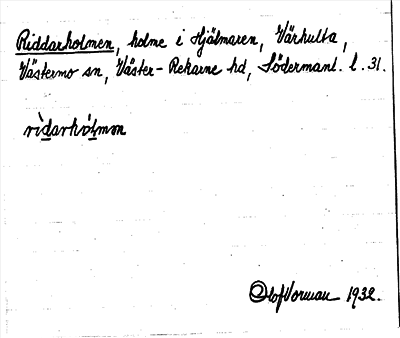 Riddarholmen, holme i Hjälmaren, Värhulta,
Västermo sn, Väster-Rekarne hd, Södermanl. l. 31.
rìdarhólmən
Olof Vorman 1932.